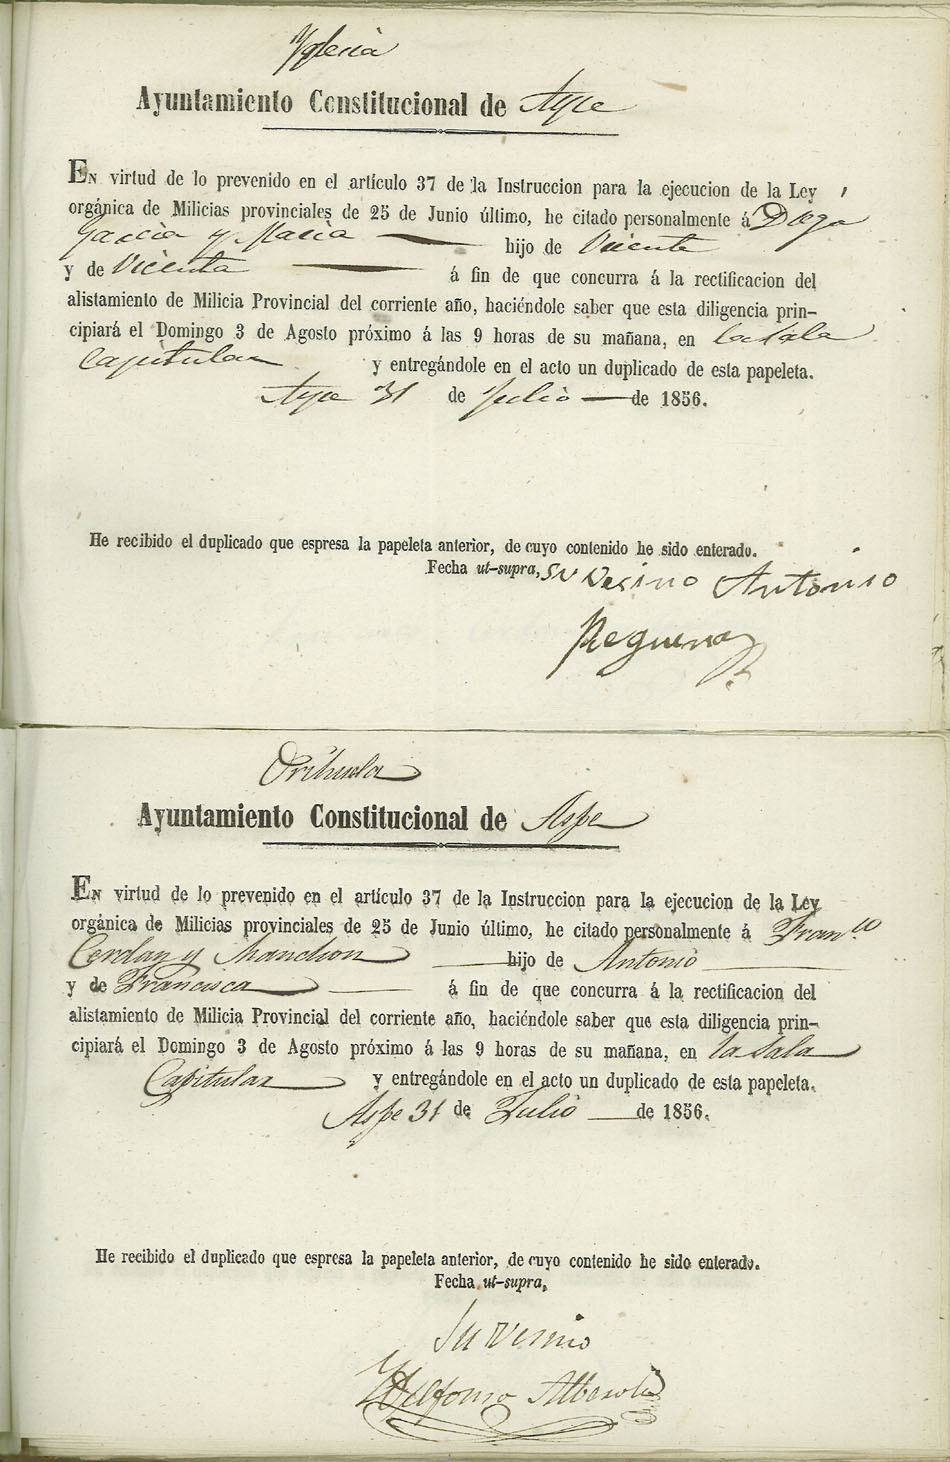 Yglecia
Ayuntamiento Constitucional de Aspe
EN virtud de lo prevenido en el artículo 37 de la Instruccion para la ejecucion de la Ley
orgánica de Milicias provinciales de 25 de Junio último, he citado personalmente á Diego
Garcia y Macia hijo de Vicente
y de Vicenta á fin de que concurra á la rectificacion del
alistamiento de Milicia Provincial del corriente año, haciéndole saber que esta diligencia prin-
cipiará el Domingo 3 de Agosto próximo á las 9 horas de su mañana, en la sala
Capitular y entregándole en el acto un duplicado de esta papeleta.
Aspe 31 de Julio de 1856.
He recibido el duplicado que espresa la papeleta anterior, de cuyo contenido he sido enterado.
Fecha ut-supra, su Vesino Antonio
Reguena
Orihuela
Ayuntamiento Constitucional de Aspe
EN virtud de lo prevenido en el artículo 37 de la Instruccion para la ejecucion de la Ley
orgánica de Milicias provinciales de 25 de Junio último, he citado personalmente á Fran.co
Cerdan y Manchon hijo de Antonio
y de Francisca á fin de que concurra á la rectificacion del
alistamiento de Milicia Provincial del corriente año, haciéndole saber que esta diligencia prin-
cipiará el Domingo 3 de Agosto próximo á las 9 horas de su mañana, en la Sala
Capitular y entregándole en el acto un duplicado de esta papeleta.
Aspe 31 de Julio de 1856.
He recibido el duplicado que espresa la papeleta anterior, de cuyo contenido he sido enterado.
Fecha ut-supra,
Su Vesino
Yldlfonso Alberola